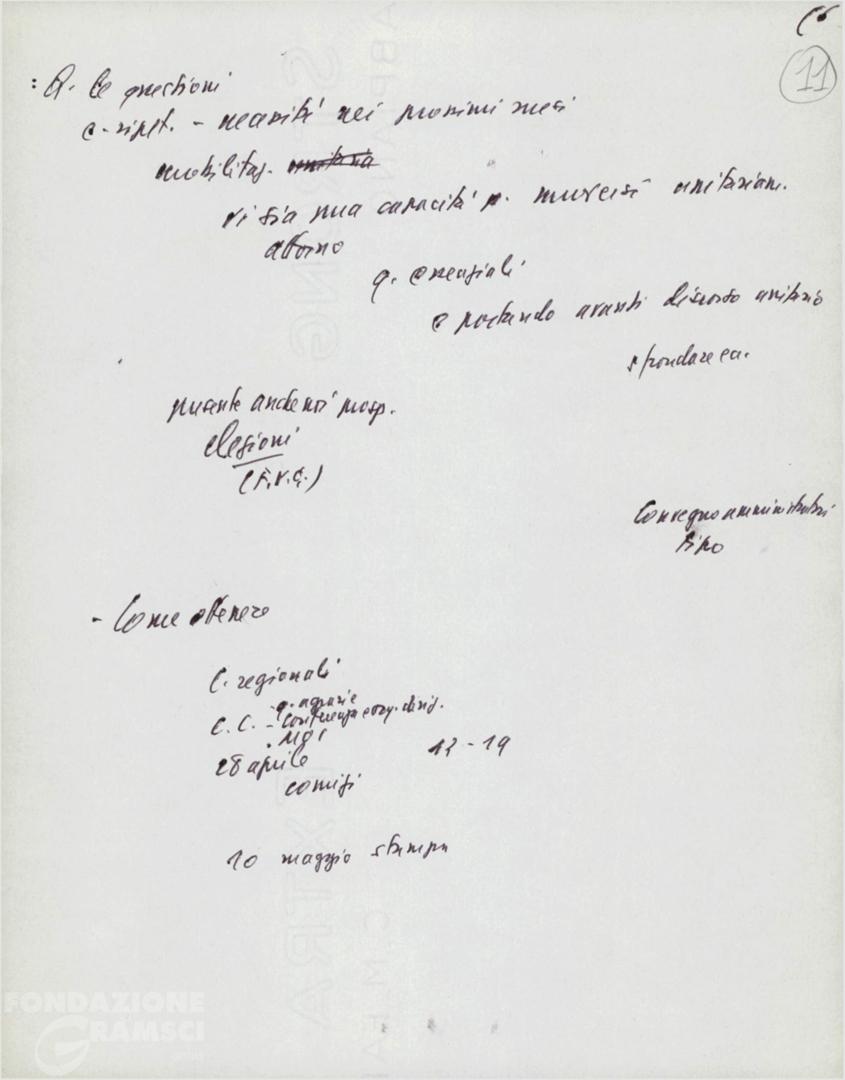 11
: Q. le questioni
e - ripet. - necessità nei prossimi mesi
mobilitaz. unitaria
vi sia una capacità p. muversi unitariam.
attorno
q. essenziali
e portando avanti discorso unitario
sfondare ecc.
presente anche noi prosp.
elezioni
(F.V.G.)
Convegno amministratori
tipo
- Come ottenere
C. regionali
q. agrarie
C.C. - Conferenza
28 aprile
12 - 19
comizi
10 maggio stampa
FONDAZIONE
GRAMSCI